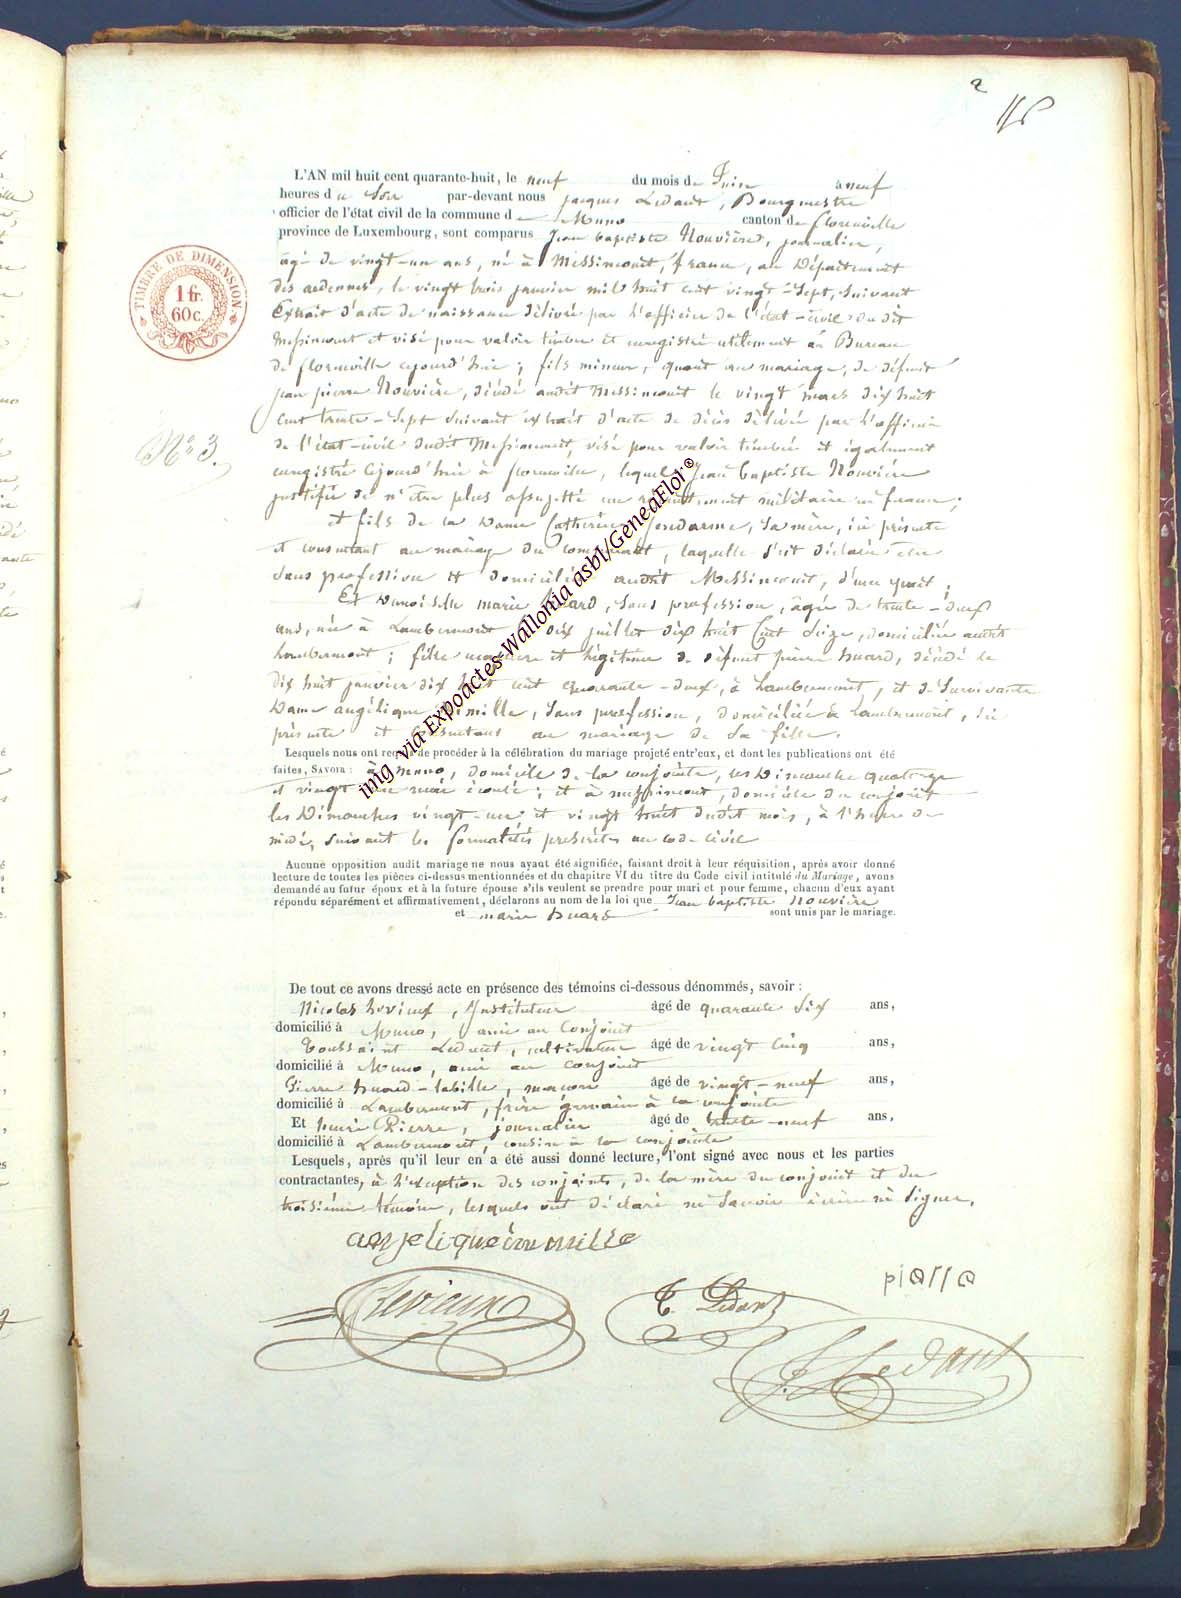 2
TIMBRE DE DIMENSION
1 fr.
60 c.
N° 3.
L'AN mil huit cent quarante-huit, le neuf du mois de Juin à neuf
heures du Soir par-devant nous Jacques Ledant, Bourgmestre
officier de l'état civil de la commune de Muno canton de florenville
province de Luxembourg, sont comparus Jean baptiste Nouvière, journalier,
âgé de vingt-un ans, né à Messincourt, france, au Département
des ardennes, le vingt trois janvier mil huit cent vingt-Sept, Suivant
Extrait d'acte de naissance délivré par l'officier de l'état-civil du dit
Messincourt et visé pour valoir timbre et enregistré utilement au Bureau
de florenville cejourd'hui ; fils mineur, quant au mariage, de défunt
jean pierre Nouvière, décédé audit Messincourt le vingt mars dix huit
cent trente-Sept Suivant extrait d'acte de décès délivré par l'officier
de l'état-civil dudit Messincourt, visé pour valoir timbre et également
enregistré cejourd'hui à florenville, lequel Jean baptiste Nouvière
justifie de n'être plus assujetti au recrutement militaire en france ;
et fils de la Dame Catherine Gendarme, Sa mère, ici présente
et consentant au mariage du comparant, laquelle s'est déclarée être
Sans profession et domiciliée audit Messincourt, d'une part ;
Et Demoiselle marie huard, Sans profession, âgée de trente-deux
ans, née à Lambermont dix juillet dix huit Cent Seize, domiciliée audit
Lambermont ; fille majeure et légitime de défunt pierre huard, décédé le
dix huit janvier dix huit cent quarante-deux, à Lambermont, et de Survivante
Dame angélique immille, Sans profession, domiciliée à Lambermont, ici
présente et Consentans au mariage de Sa fille.
Lesquels nous ont requis de procéder à la célébration du mariage projeté entr'eux, et dont les publications ont été
faites, SAVOIR : à Muno, domicile de la conjointe, les Dimanche quatorze
et vingt une mai écoulé ; et à messincourt, domicile du conjoint
les Dimanches vingt-un et vingt huit dudit mois, à l'heure de
midi, Suivant les formalités prescrites au code civil
Aucune opposition audit mariage ne nous ayant été signifiée, faisant droit à leur réquisition, après avoir donné
lecture de toutes les pièces ci-dessus mentionnées et du chapitre VI du titre du Code civil intitulé du Mariage, avons
demandé au futur époux et à la future épouse s'ils veulent se prendre pour mari et pour femme, chacun d'eux ayant
répondu séparément et affirmativement, déclarons au nom de la loi que Jean baptiste Nouvière
et marie huard sont unis par le mariage.
De tout ce avons dressé acte en présence des témoins ci-dessous dénommés, savoir :
Nicolas Levieux, Instituteur âgé de quarante Six ans,
domicilié à Muno, ami au Conjoint
Toussaint Ledent, cultivateur âgé de vingt Cinq ans,
domicilié à Muno, ami au conjoint
Pierre huard-labille, maçon âgé de vingt-neuf ans,
domicilié à Lambermont, frère germain à la conjointe
Et henri Pierre, journalier âgé de trente-neuf ans,
domicilié à Lambermont, cousin à la conjointe
Lesquels, après qu'il leur en a été aussi donné lecture, l'ont signé avec nous et les parties
contractantes, à l'exception des conjoints, de la mère du conjoint et du
troisième témoin, lesquels ont déclaré ne Savoir écrire ni Signer.
angelique immille
pierre
Levieux
T. Ledant
J. Ledant
img via Expoactes-Wallonia asbl/GeneaFlor©